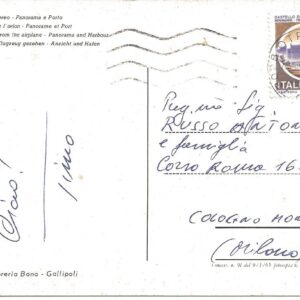 ereo - Panorama e Porto
e l'avion - Panorame et Port
from the airplane - Panorama and Harbour
Flugzeug gesehen - Ansicht und Hafen
CASTELLO
ITALI
Ciao!
Preg.mo Sig.
RUSSO ANTON
e famiglia
Corso Roma 16
COLOGNO MON
(Milano
breria Bono - Gallipoli